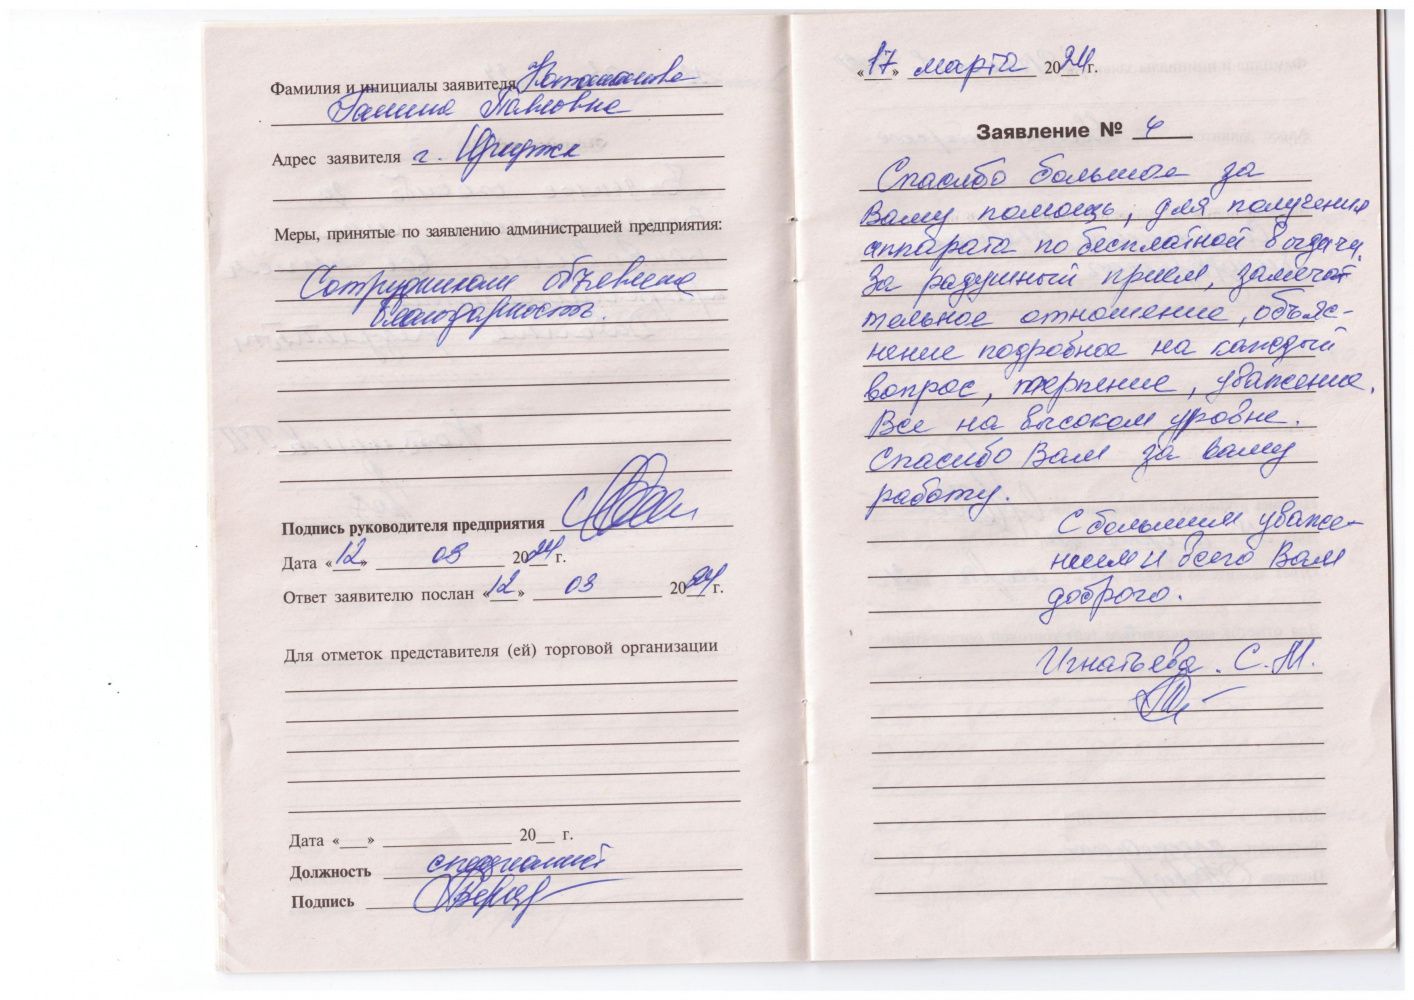 Фамилия и инициалы заявителя
Галина Павловна
Адрес заявителя г. Иркутск
Меры, принятые по заявлению администрацией предприятия:
Сотрудникам объявлена
благодарность.
Подпись руководителя предприятия
Дата «12» 03 2024 г.
Ответ заявителю послан «12» 03 2024 г.
Для отметок представителя (ей) торговой организации
Дата «___» ______ 20__ г.
Должность специалист
Подпись
«17» марта 2024г.
Заявление № 4
Спасибо большое за
Вашу помощь, для получения
аппарата по бесплатной выдачи.
За радушный прием, замечат
тельное отношение, объяс-
нение подробное на каждый
вопрос, терпение, уважение.
Все на высоком уровне.
Спасибо Вам за вашу
работу.
С большим уваже-
нием и всего Вам
доброго.
Игнатьева. С.М.